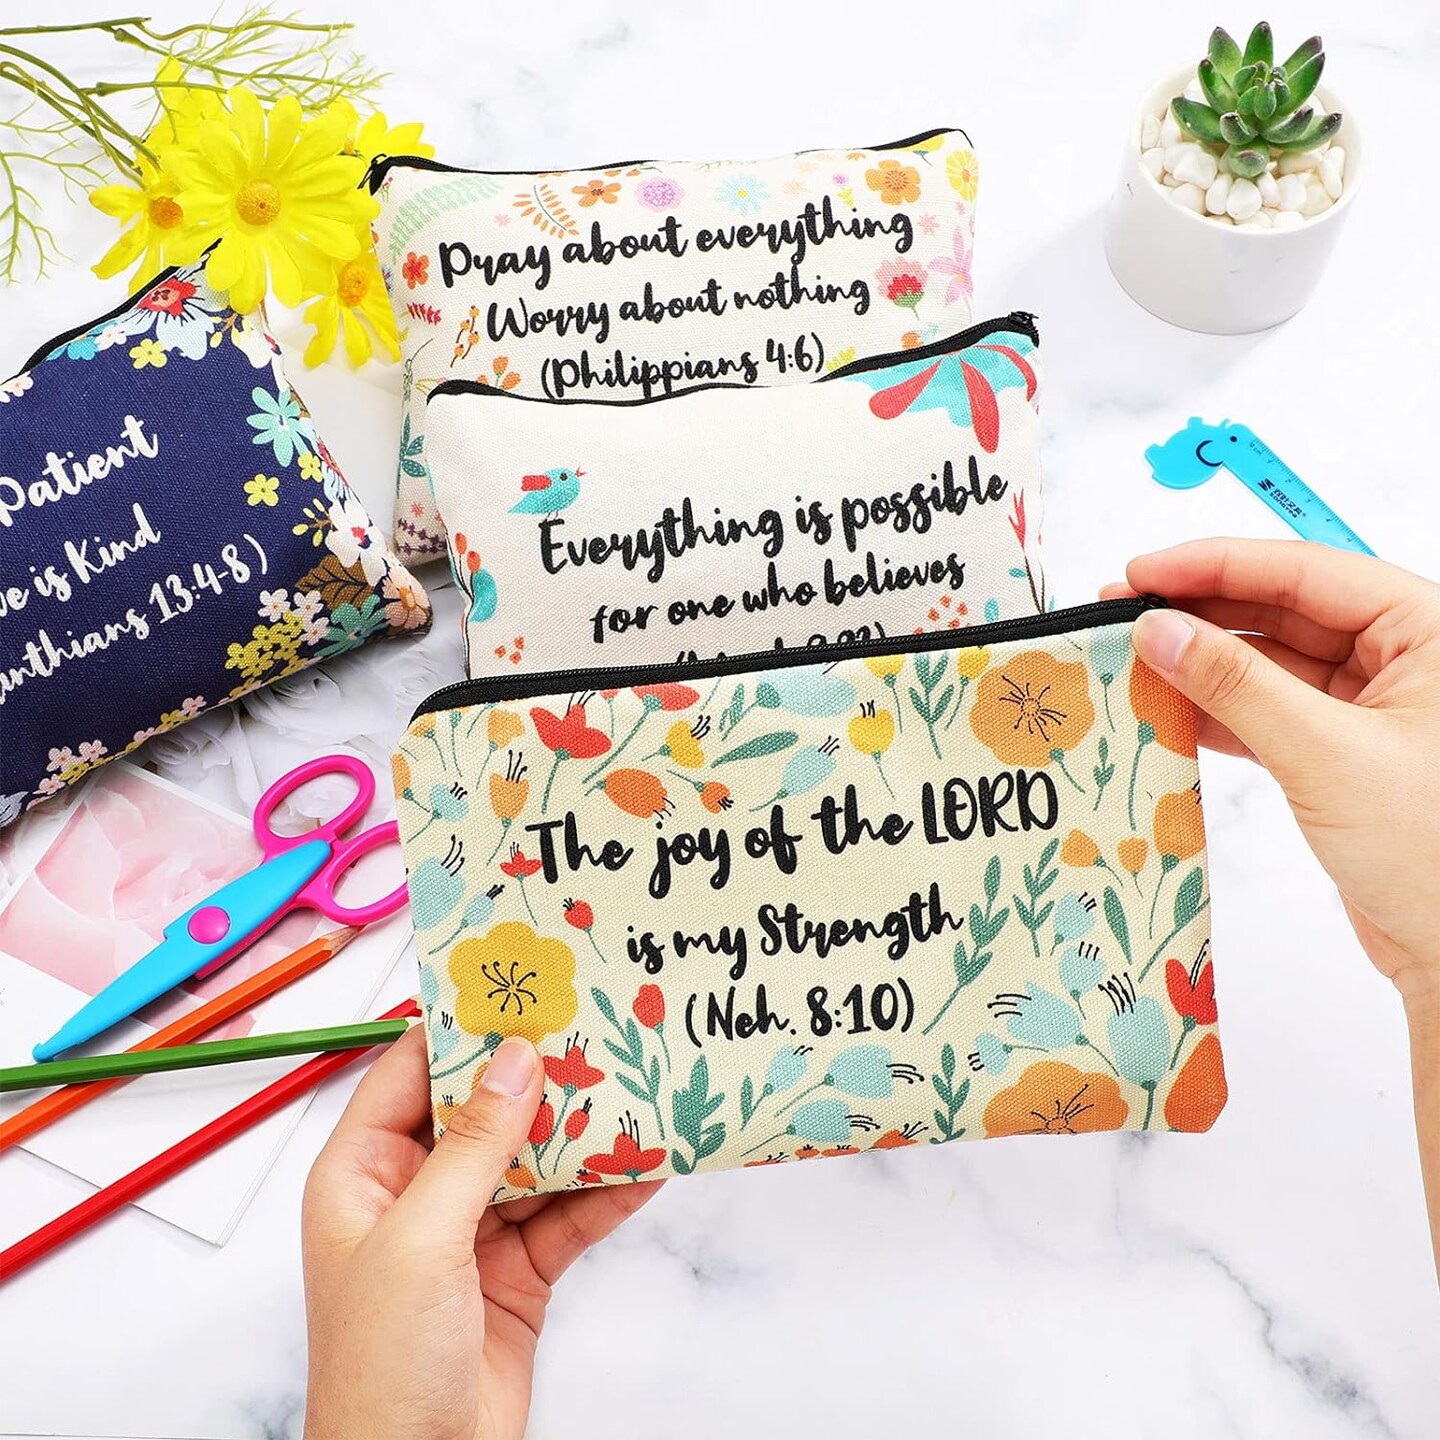 Pray about everything
Worry about nothing
(Philippians 4:6)
Patient
is Kind
13:4-8)
Everything is possible
for one who believes
The joy of the LORD
is my Strength
(Neh. 8:10)